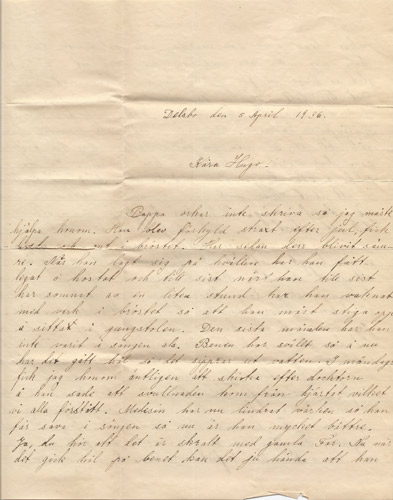 Delsbo den 5 April 1936.
Kära Hugo.
Pappa orkar inte skriva så jag måste
hjälpa honom. Han blev förkyld straxt efter jul, fick
ont i bröstet. Har sedan dess blivit säm-
re. När han lagt sig på kvällen har han fått
legat å hostat och till sist när han till sist
har somnat av en liten stund har han vaknat
med verk i bröstet så att han måst stiga upp
å sitta i gungstolen. Den sista månaden har han
inte varit i sängen als. Benen har svällt så å nu
har det gått hål så det sipprar ut vatten. I måndags
fick jag honom äntligen att skicka efter doktorn
å han sade att svullnaden kom från hjärtat vilket
vi alla förstått. Medesin har nu lindrat värken så han
får sova i sängen så nu är han mycket bättre.
Ja, du hör att det är skralt med gamla Far. Nu när
det gick hål på benet kan det ju hända att han